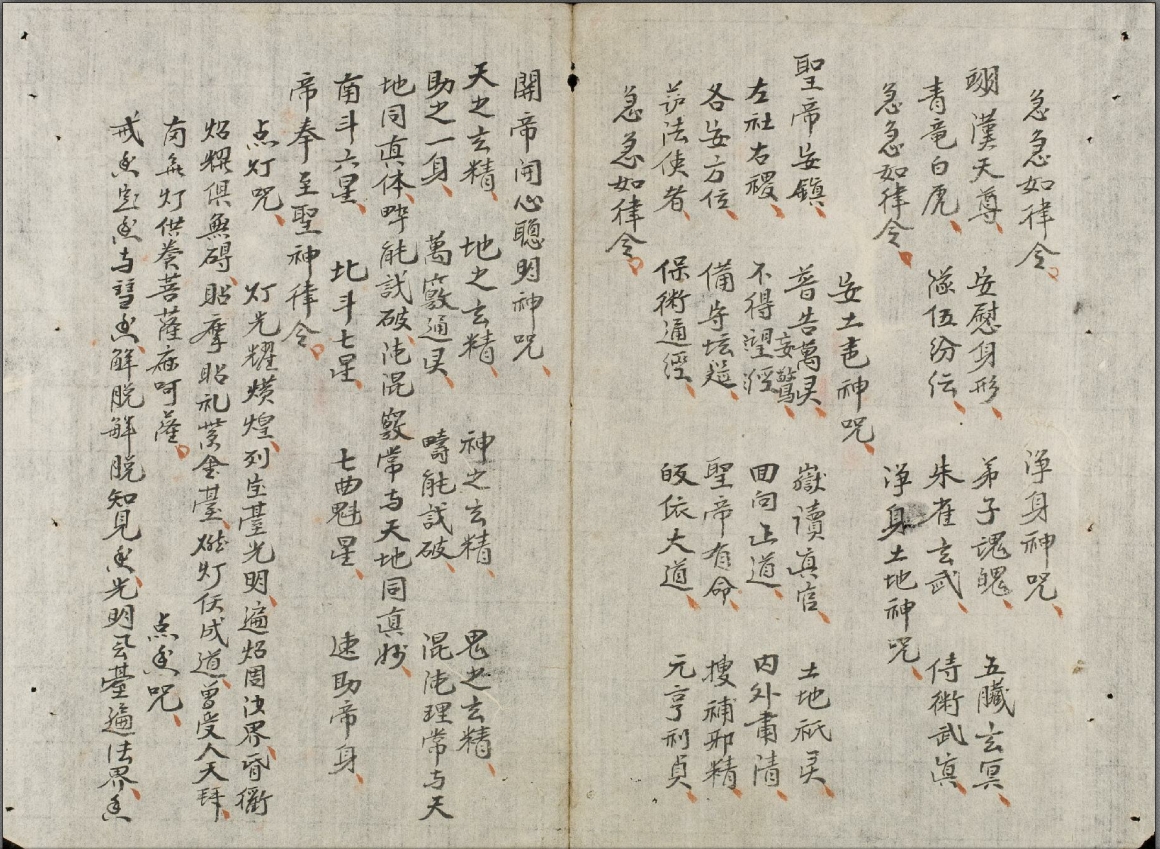 急急如律令　淨身神咒
翊漢天尊　安慰身形　弟子魂魄　五臟玄冥
青竜白虎　隊伍紛伝　朱雀玄武　侍衛武真
急急如律令　淨身土地神咒
安土地神咒
聖帝安鎮　普告萬灵　嶽讀真官　土地祇灵
左社右稷　不得妄驚　回向正道　内外肅清
各安方位　備守坛筵　聖帝有命　搜補邪精
法使者　保衛通經　皈依大道　元亨利貞
急急如律令
開帝開心聰明神咒
天之玄精　地之玄精　神之玄精　鬼之玄精
助之一身　萬竅通灵　疇能戝破　混沌理常与天
地同真体　畔能戝破　沌混竅常与天地同真妙
南斗六星　北斗七星　七曲魁星　速助帝身
帝奉至聖神律令
点灯咒　灯光耀熿煌列宝臺光明遍炤周法界昏衢
炤耀俱無碍　貼摩貼礼黄金臺　灯仸成道曾受人天拜
南無灯供養菩薩麻呵薩　点香咒
戒香定香与慧香解脱解脱知見香光明雲臺遍法界香